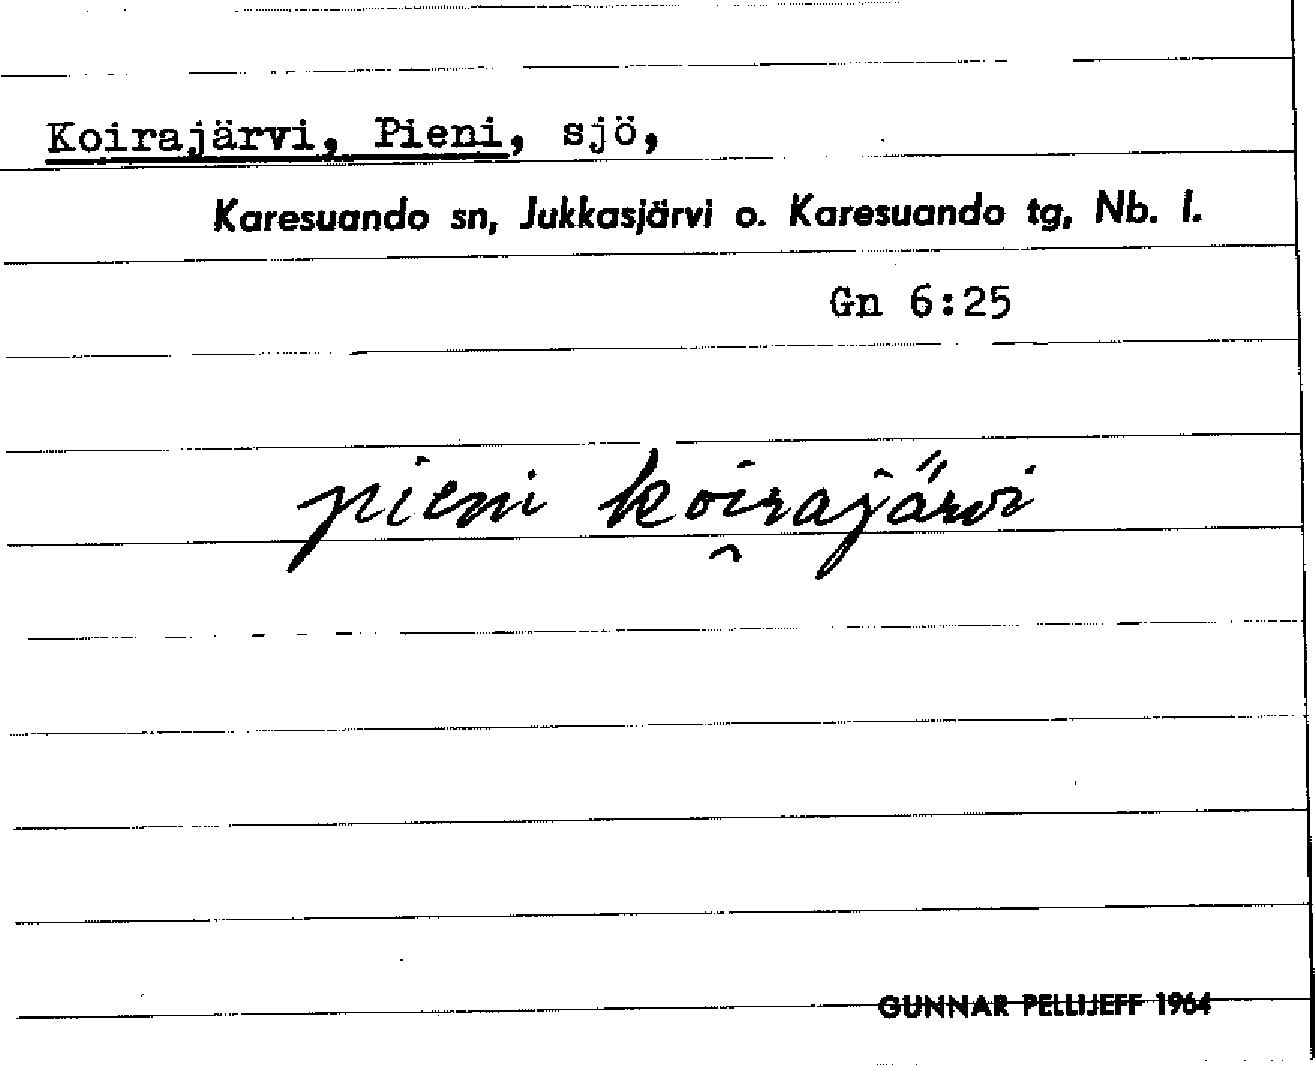 Koirajärvi, Pieni, sjö,
Karesuando sn, Jukkasjärvi o. Karesuando tg, Nb. l.
Gn 6:25
pieni koi̯rajärvi
GUNNAR PELLIJEFF 1964